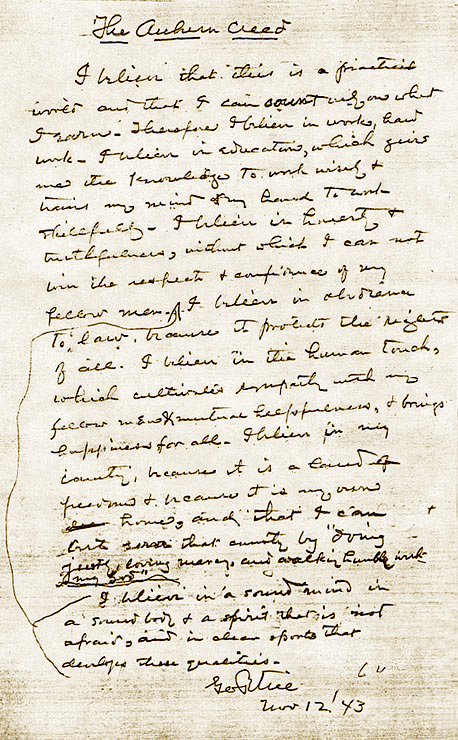 The Auburn Creed
I believe that this is a practical
world and that I can count only on what
I earn - Therefore I believe in work, hard
work - I believe in education, which gives
me the knowledge to work wisely &
trains my mind & my hand to work
skillfully - I believe in honesty &
truthfulness, without which I can not
win the respect & confidence of my
fellow men. I believe in obedience
to law, because it protects the rights
of all. I believe in the human touch,
which cultivates sympathy with my
fellow men & mutual helpfulness, & brings
happiness for all - I believe in my
country, because it is a land of
freedom & because it is my own
home, and that I can
best serve that country by "doing
justly, loving mercy, and walking humbly with
my God"
I believe in a sound mind in
a sound body & a spirit that is not
afraid, and in clean sports that
develops these qualities -
Geo Petrie
Nov 12' 43